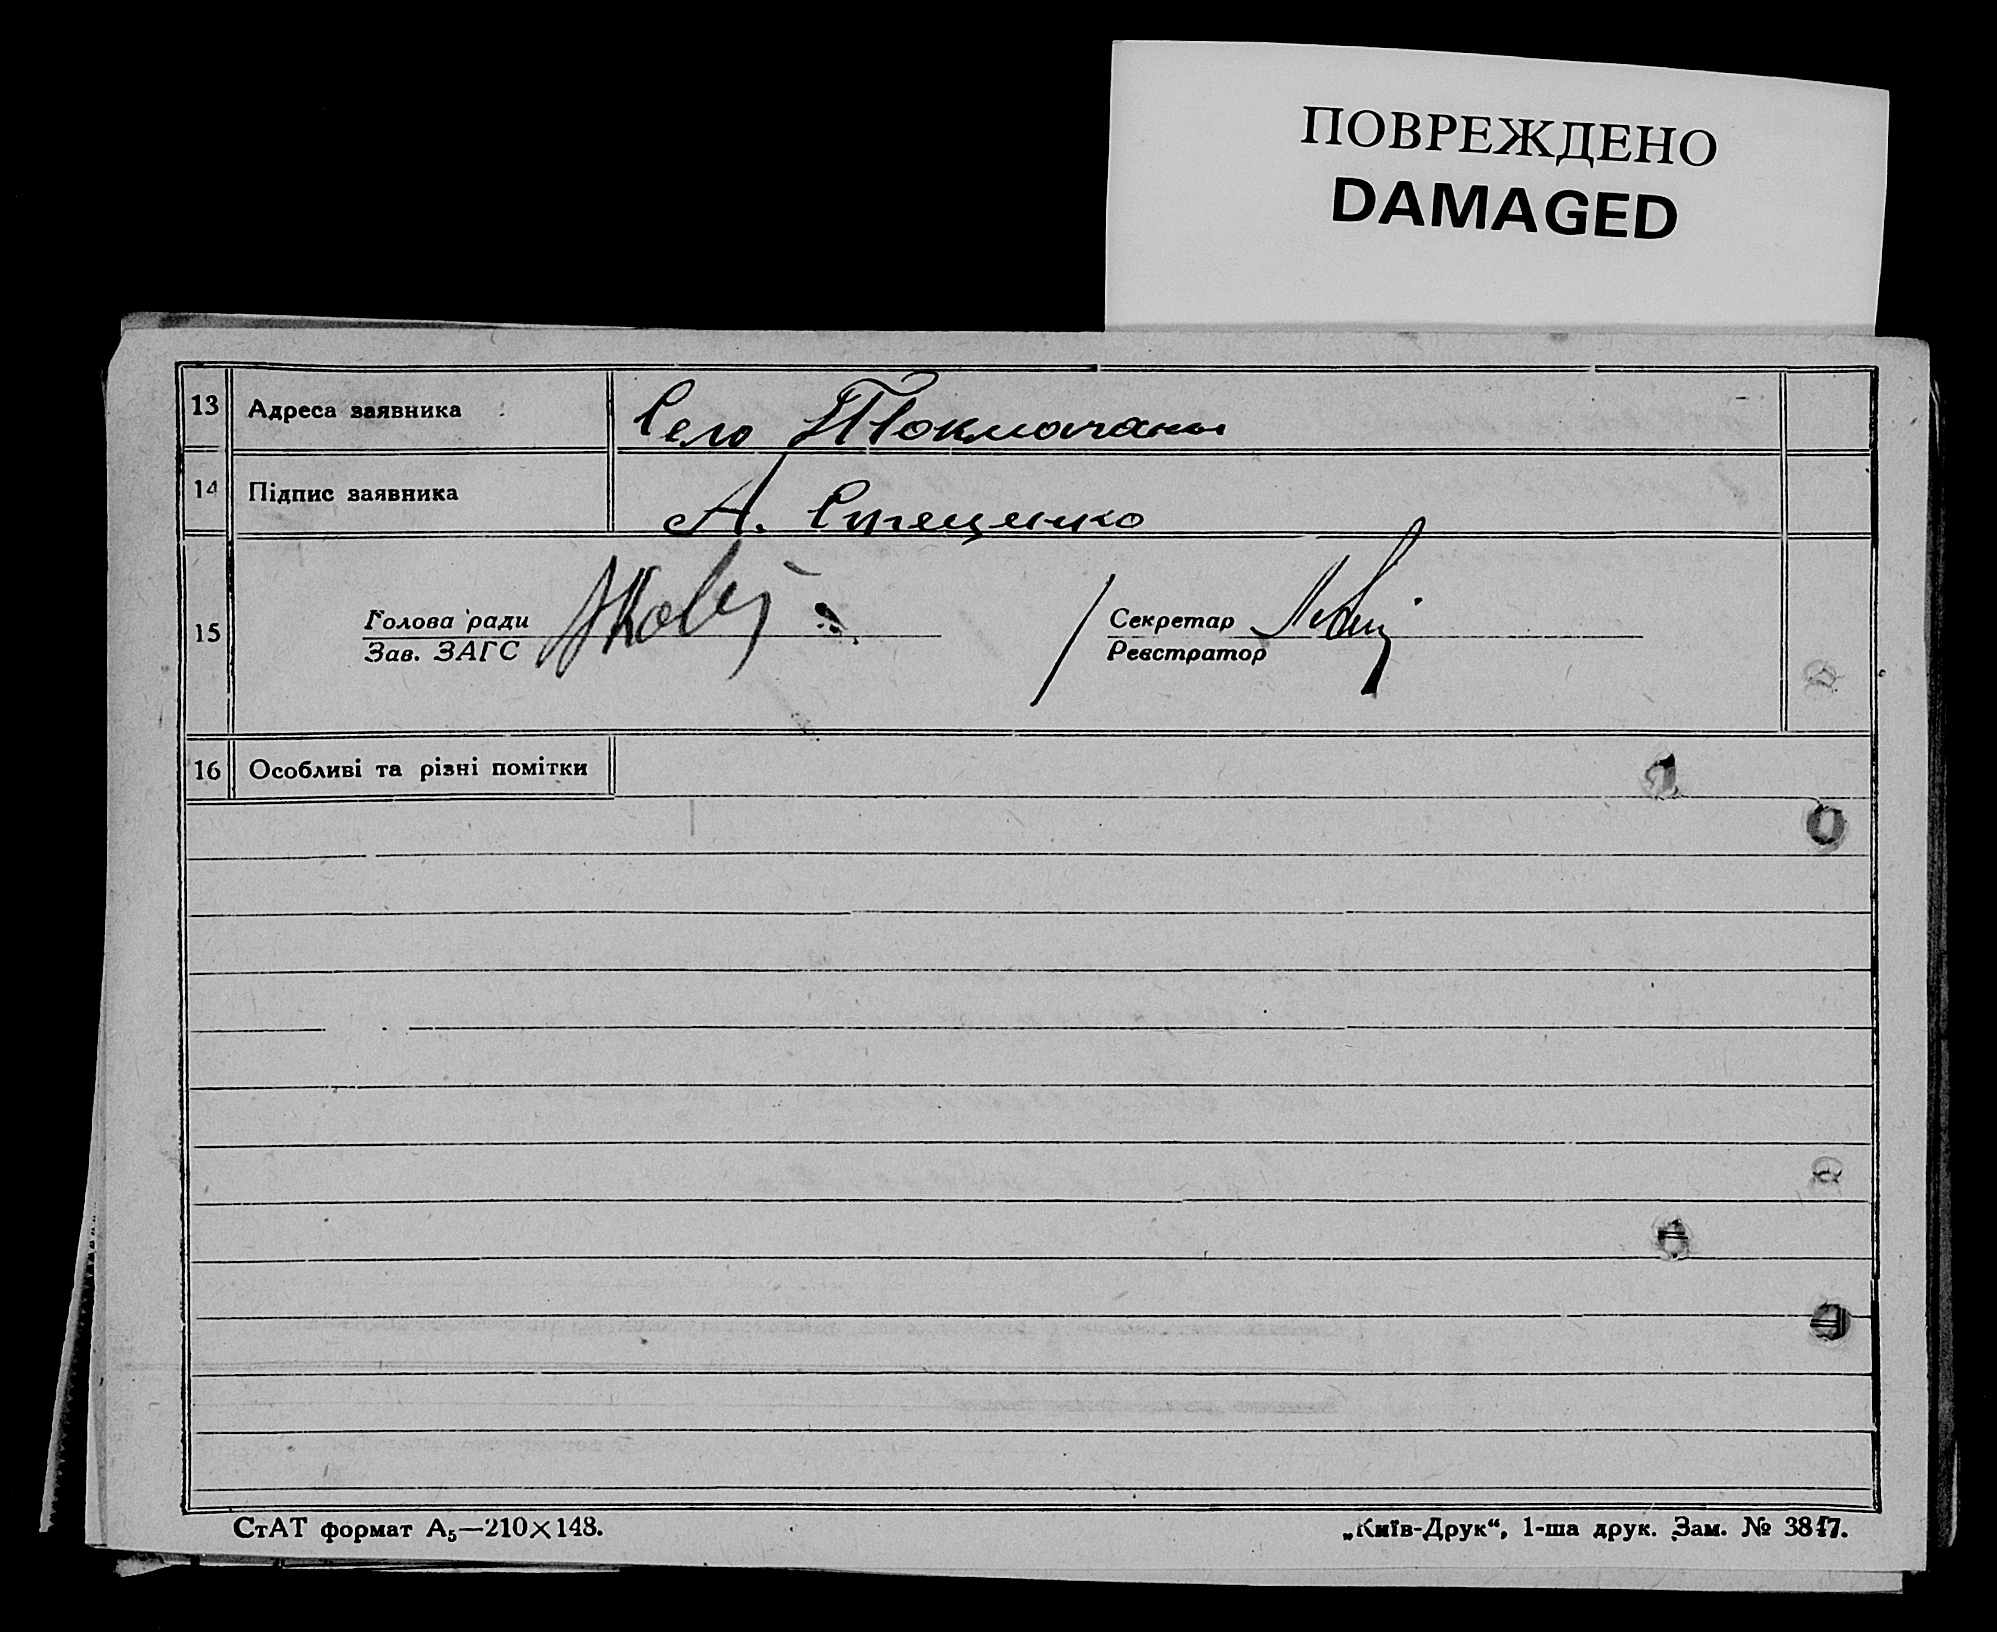 ПОВРЕЖДЕНО
DAMAGED
13 Адреса заявника Село
14 Підпис заявника А. Стеценко
15 Голова ради Секретар
Зав. ЗАГС Реєстратор
16 Особливі та різні помітки
СтАТ формат А₅—210×148.
„Київ-Друк“, 1-ша друк. Зам. № 3847.